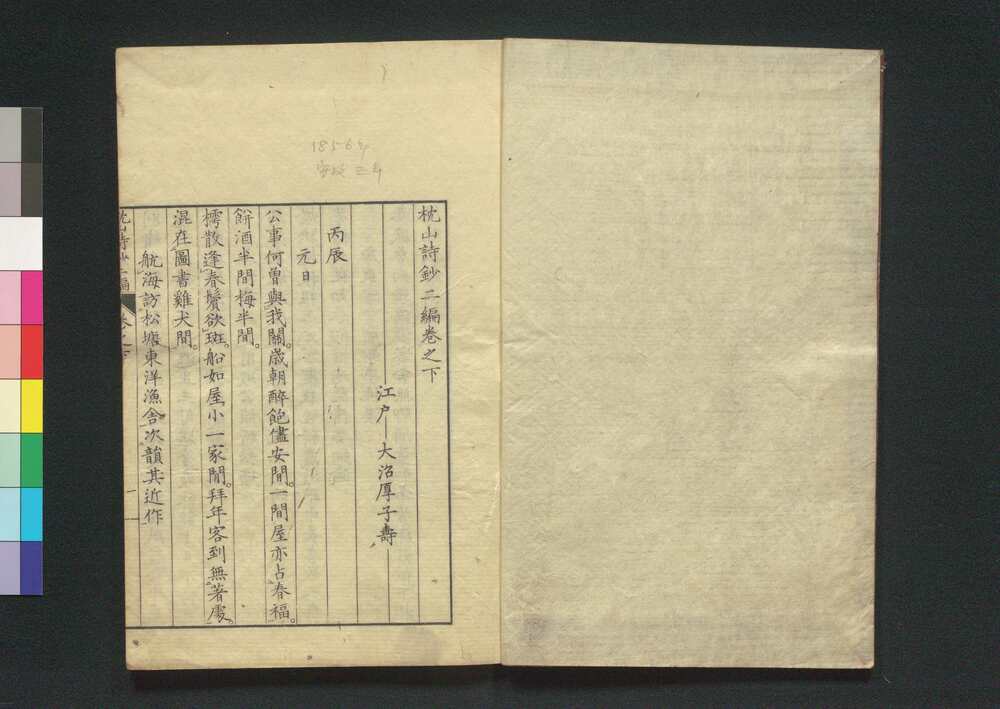 1856年
安政三年
枕山詩鈔二編卷之下
江戸 大沼厚子壽
丙辰
元日
公事何曽與我關。歳朝醉飽儘安閒。一間屋亦占春福。
餠酒半間梅半間。
樗散逢春鬢欲斑。船如屋小一家閒。拜年客到無著處。
混在圖書雞犬間。
航海訪松塘東洋漁舎次韻其近作
枕山詩鈔二編
卷之下
一